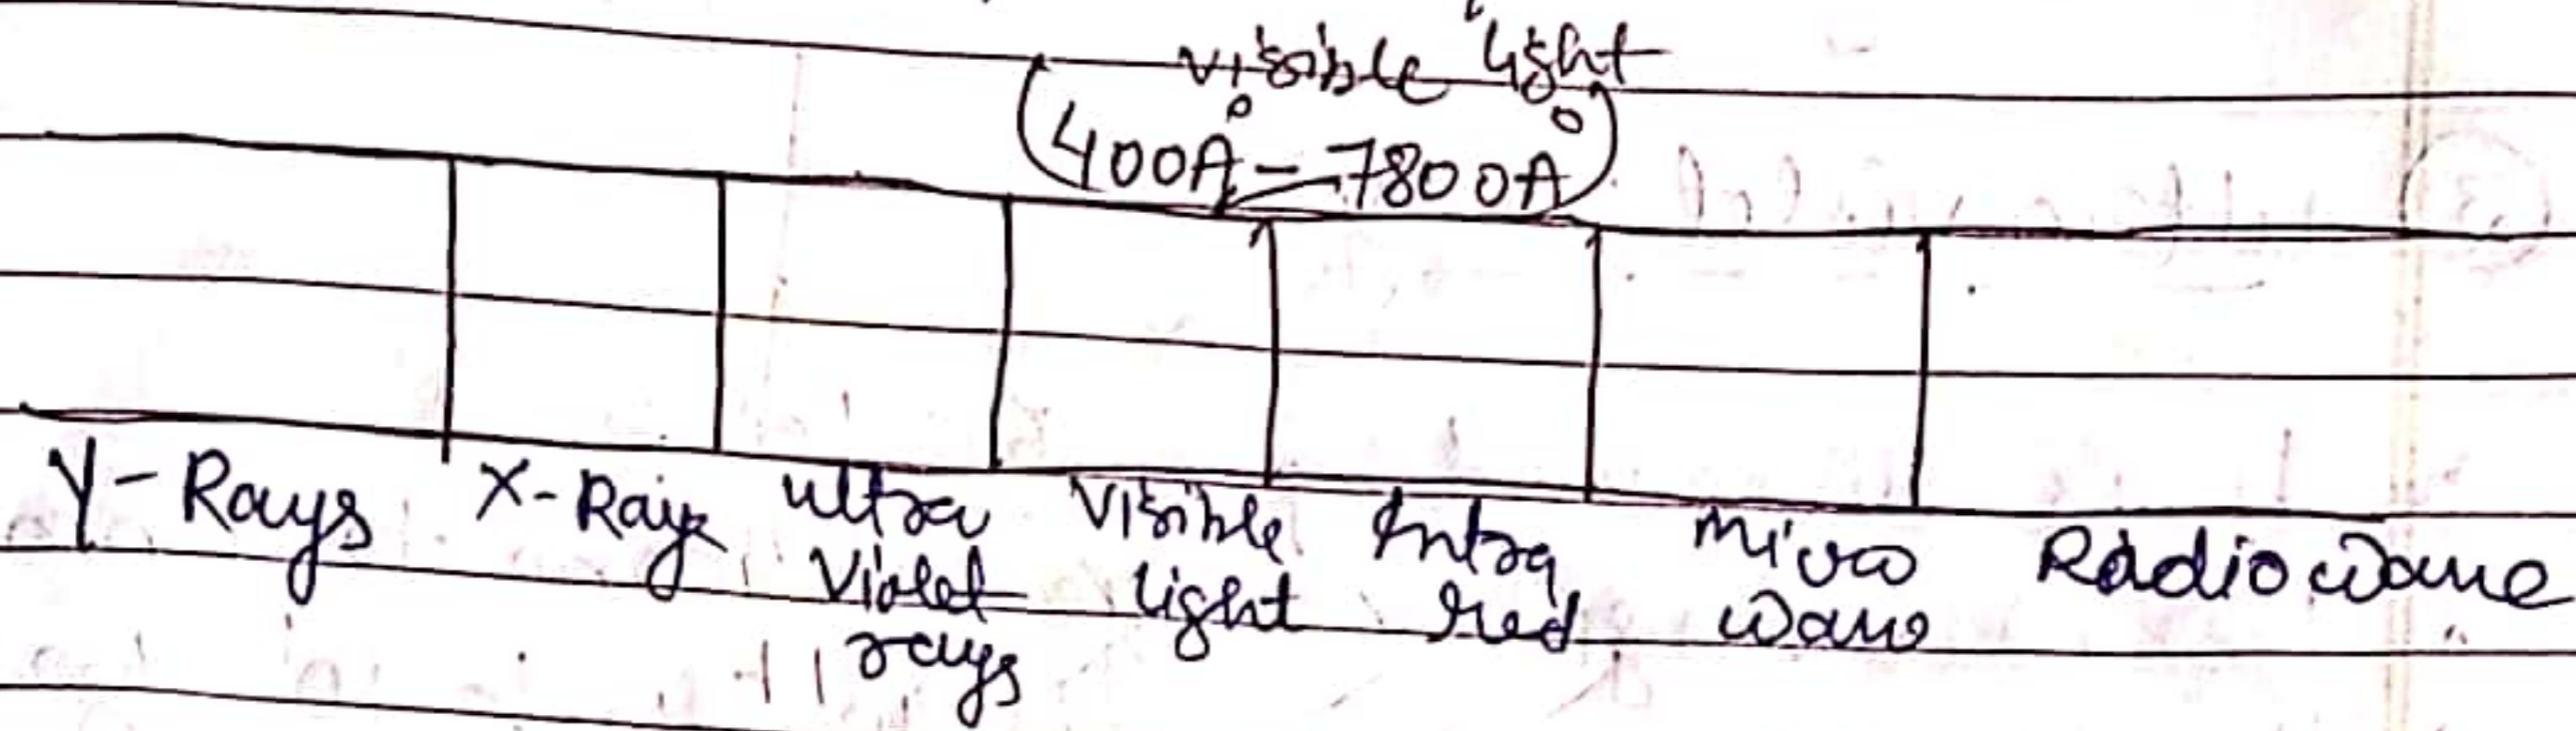 visible light
(400Å - 7800Å)
γ- Rays
X-Rays
ultra
Violet
rays
Visible
light
Infra
red
micro
wave
Radiowave